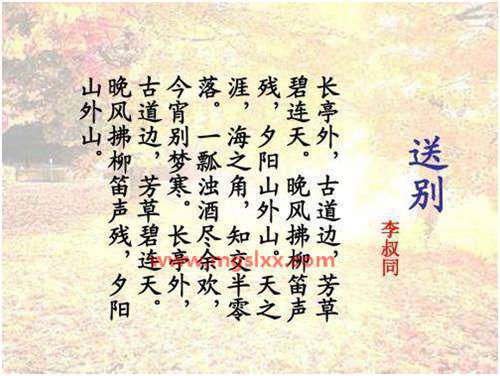 送别
李叔同
长亭外，古道边，芳草
碧连天。晚风拂柳笛声
残，夕阳山外山。天之
涯，海之角，知交半零
落。一瓢浊酒尽余欢，
今宵别梦寒。长亭外，
古道边，芳草碧连天。
晚风拂柳笛声残，夕阳
山外山。
www.mgslxx.com